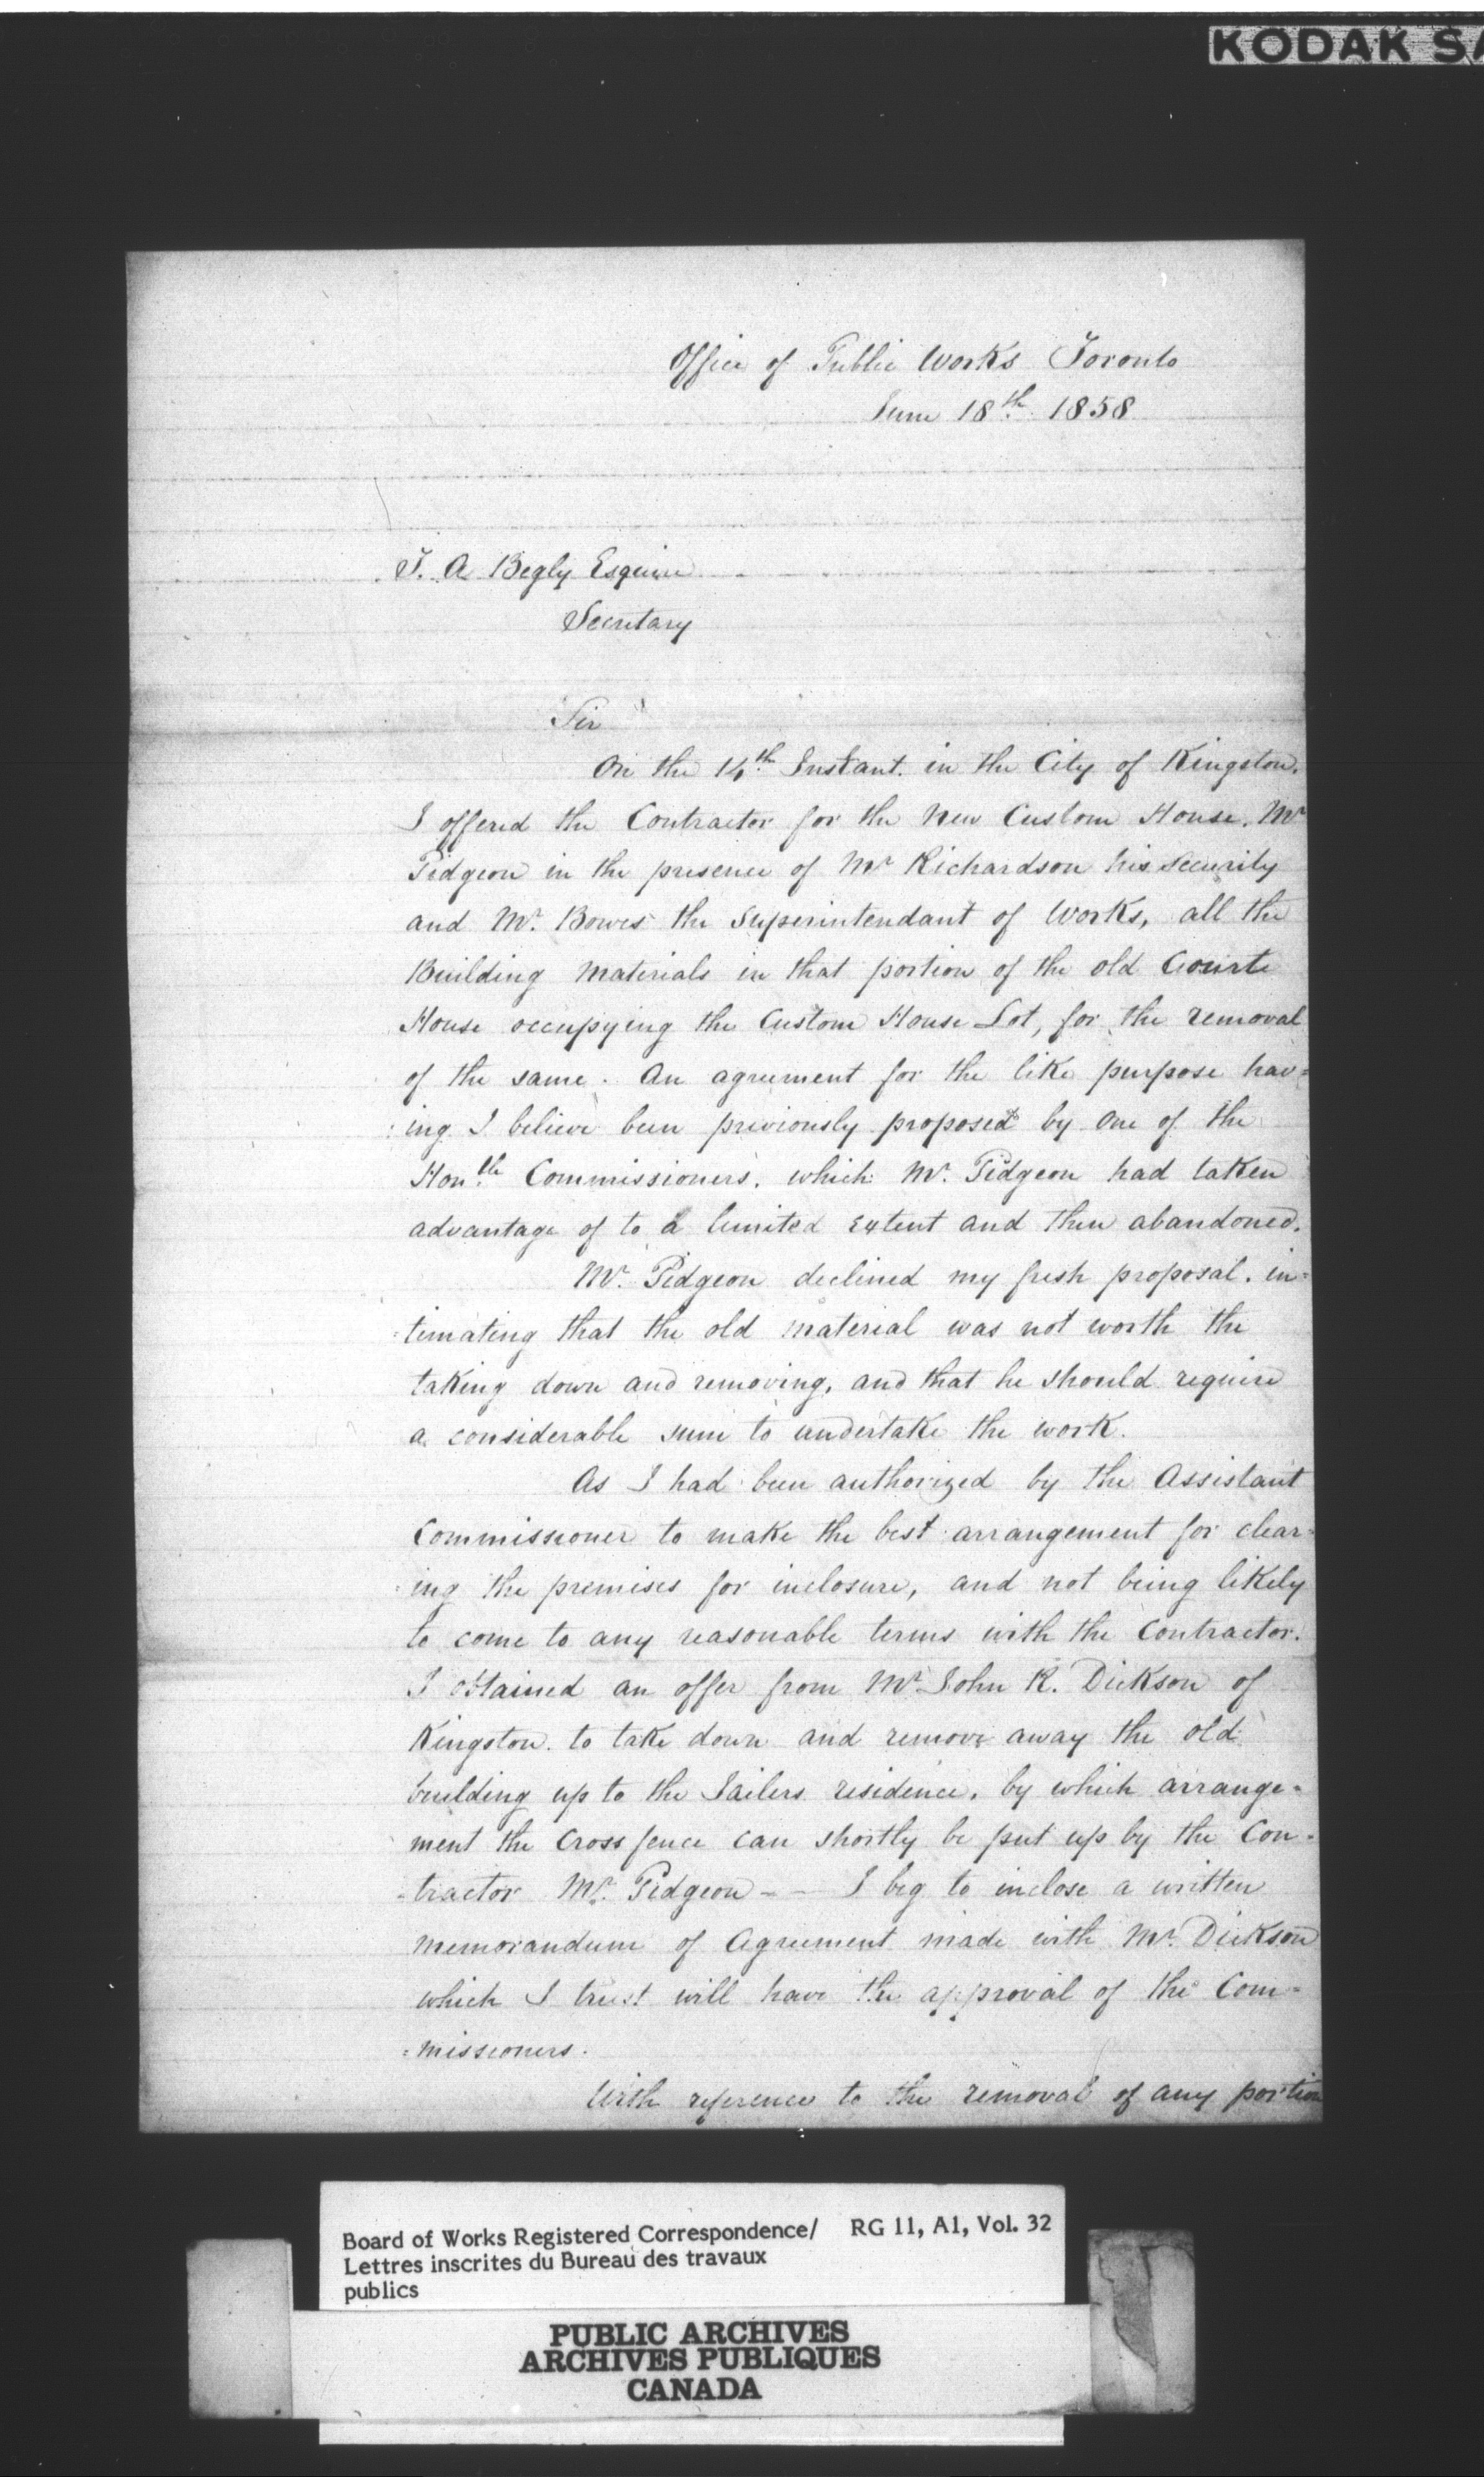 KODAK SA
Office of Public Works Toronto
June 18th 1858
T. A Begly Esquire
Secretary
Sir
On the 14th Instant. in the City of Kingston.
I offered the Contractor for the New Custom House. Mr
Pidgeon in the presence of Mr Richardson his Security
and Mr. Bowes the Superintendant of Works, all the
Building Materials in that portion of the old Courte
House occupying the Custom House Lot, for the removal
of the same. An agreement for the like purpose hav=
ing I believe been previously proposed by One of the
Honble Commissioners. which Mr. Pidgeon had taken
advantage of to a limited extent and then abandoned.
Mr. Pidgeon declined my fresh proposal. in=
=timating that the old material was not worth the
taking down and removing, and that he should require
a considerable sum to undertake the work.
As I had been authorized by the Assistant
Commissioner to make the best arrangement for clear=
=ing the premises for inclosure, and not being likely
to come to any reasonable terms with the Contractor.
I obtained an offer from Mr John R. Dickson of
Kingston. to take down and remove away the old
building up to the Jailers residence. by which arrange=
ment the Cross fence can shortly be put up by the Con=
=tractor Mr. Pidgeon - - I beg to inclose a written
memorandum of Agreement made with Mr. Dickson
which I trust will have the approval of the Com=
=missioners.
With reference to the removal of any portion
Board of Works Registered Correspondence/ RG 11, A1, Vol. 32
Lettres inscrites du Bureau des travaux
publics
PUBLIC ARCHIVES
ARCHIVES PUBLIQUES
CANADA